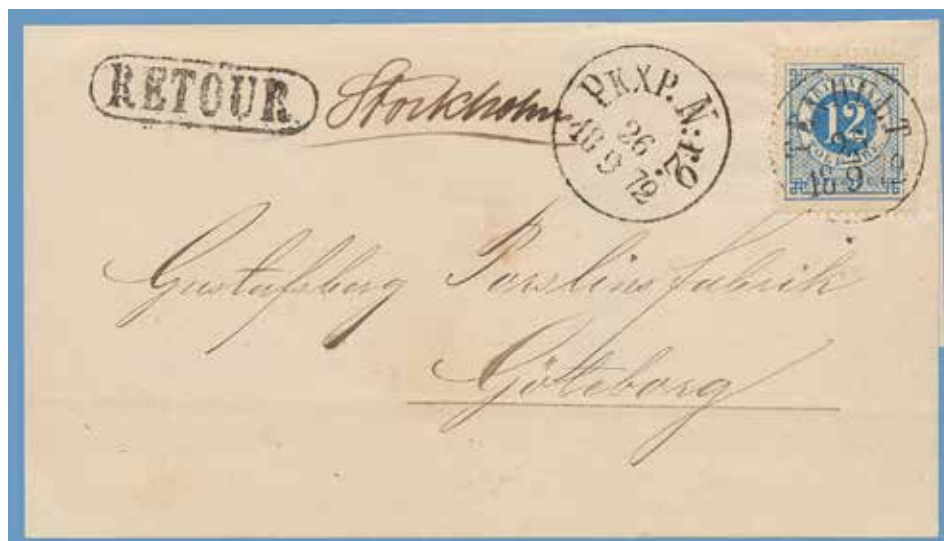 RETOUR
Stockholm
PKXP. N:12
26
18 9 72
12
18 9
Gustafsberg Porslins fabrik
Göteborg